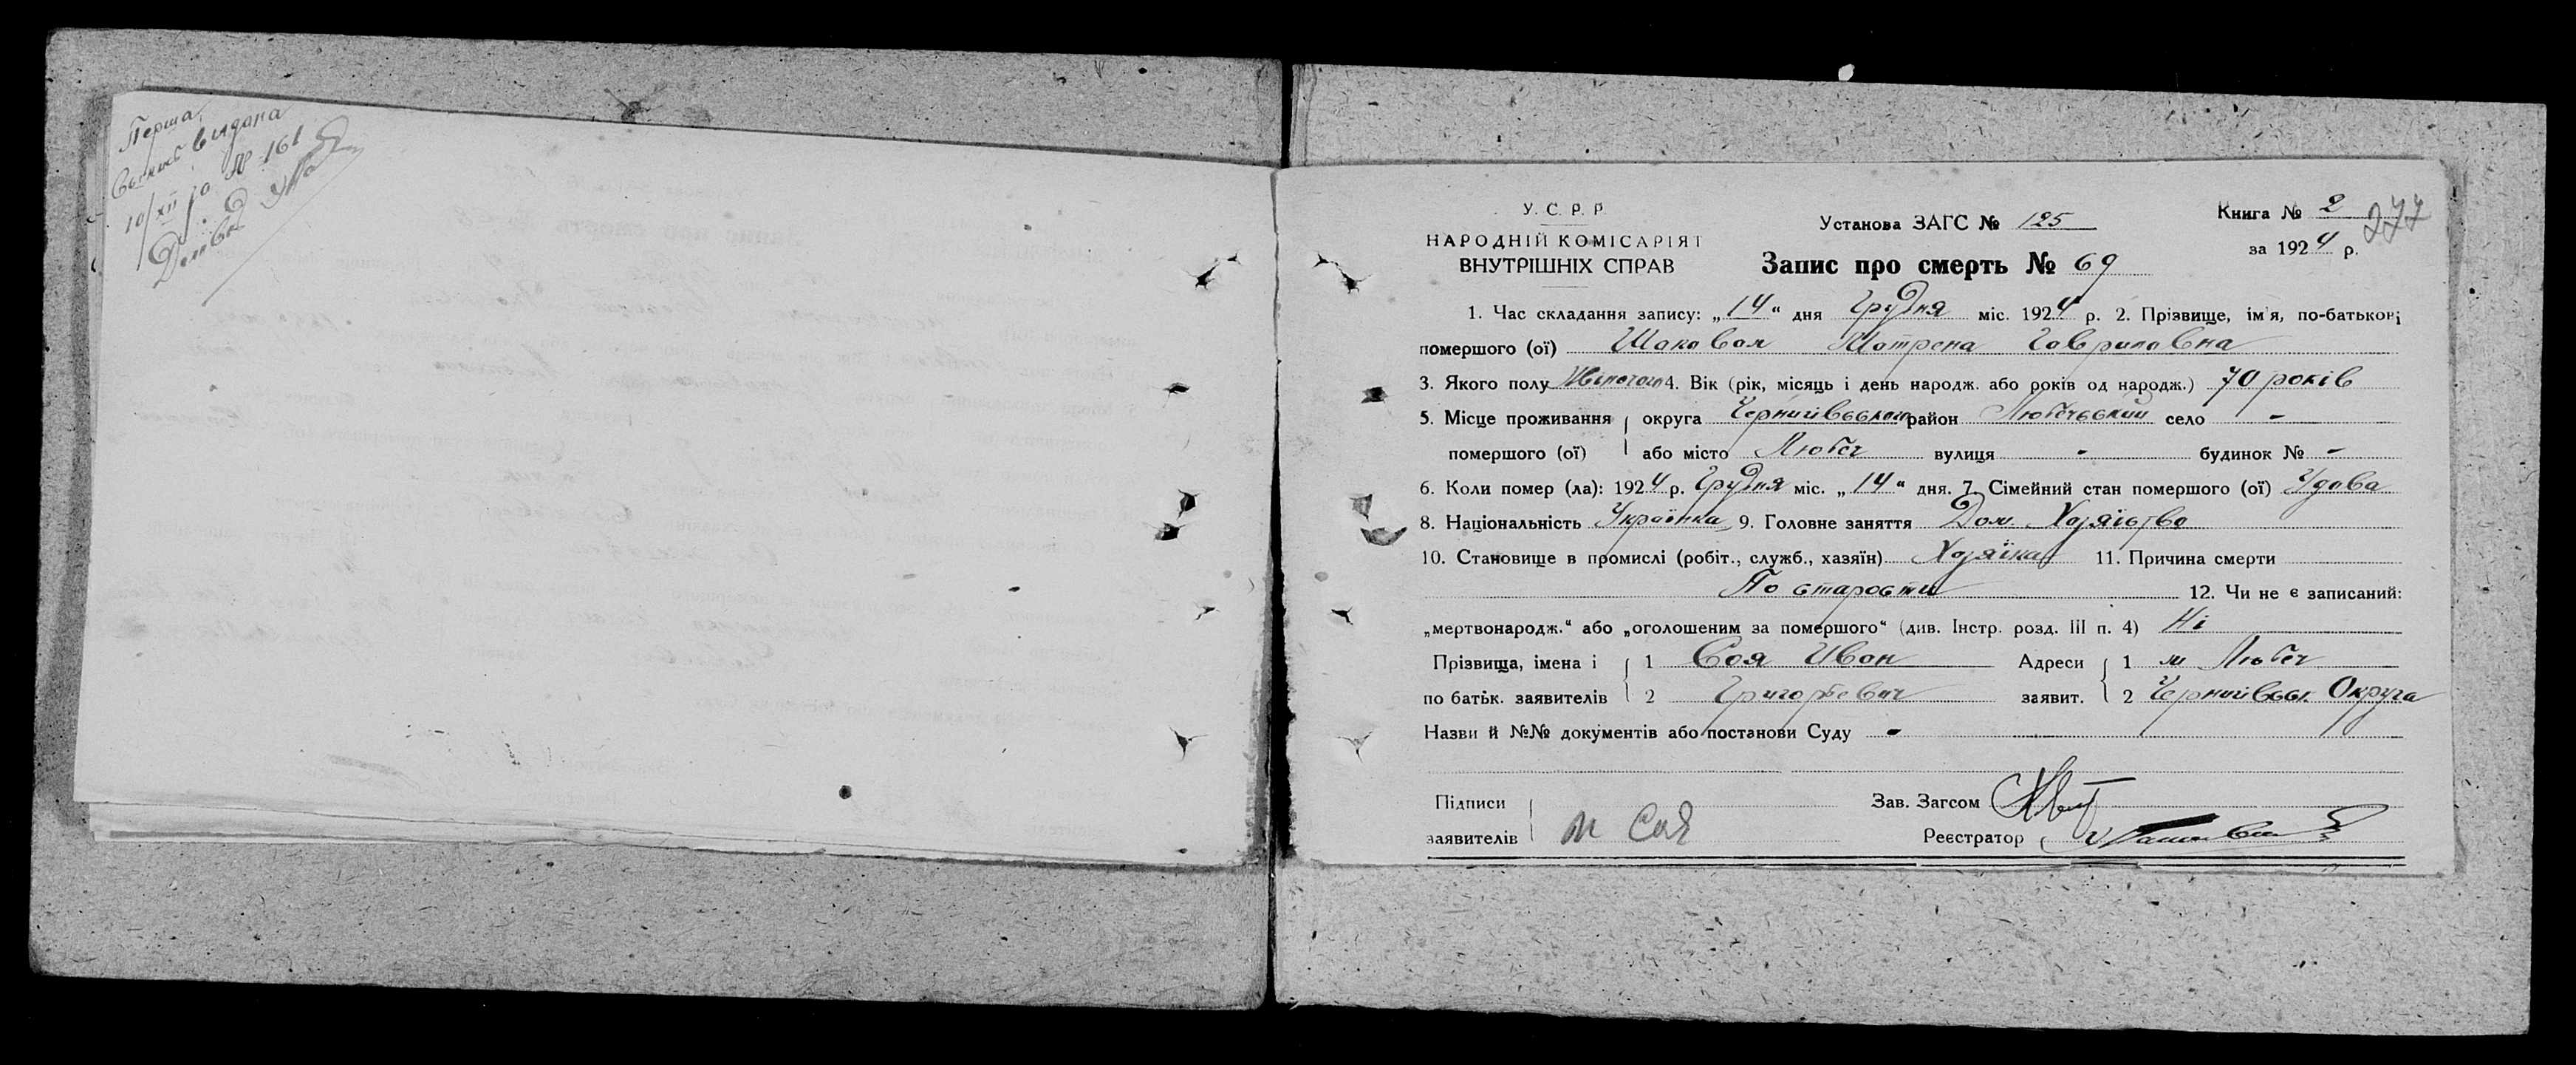 Перша
видана
10/XII № 161
У. С. Р. Р.
НАРОДНІЙ КОМІСАРІЯТ
ВНУТРІШНІХ СПРАВ
Установа ЗАГС № 125
Книга № 2
277
за 1924 р.
Запис про смерть № 69
1. Час складання запису: „14“ дня Грудня міс. 1924 р. 2. Прізвище, ім'я, по-батькові
помершого (ої) Шаковая Мотрена Гавриловна
3. Якого полу 4. Вік (рік, місяць і день народж. або років од народж.) 70 років
5. Місце проживання округа район Любечський село -
помершого (ої) або місто Любеч вулиця - будинок № -
6. Коли помер (ла): 1924 р. Грудня міс. „14“ дня. 7. Сімейний стан помершого (ої) Удова
8. Національність Українка 9. Головне заняття Дом. Хозяйство
10. Становище в промислі (робіт., служб., хазяїн) Хозяїка 11. Причина смерти
По старости 12. Чи не є записаний:
„мертвонародж.“ або „оголошеним за помершого“ (див. Інстр. розд. III п. 4) Ні
Прізвища, імена і 1 Соя Иван Адреси 1 м Любеч
по батьк. заявителів 2 Григорьевич заявит. 2 Округа
Назви й №№ документів або постанови Суду -
Підписи Зав. Загсом
заявителів И Соя Реєстратор